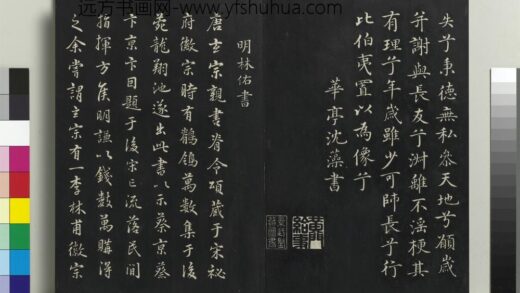 远方书画网-www.yfshuhua.com
失兮秉德無私參天地兮願歲
并謝與長友兮淑離不淫梗其
有理兮年歲雖少可師長兮行
比伯夷置以為像兮
華亭沈藻書
明林佑書
唐玄宗親書脊令頌藏于宋祕
府徽宗時有鶺鴒萬數集于後
苑龍翔池遂出此書以示蔡京蔡
卞京卞同題于後宋亡流落民間
指揮方侯明謙以錢數萬購得
之余嘗謂玄宗有一李林甫徽宗